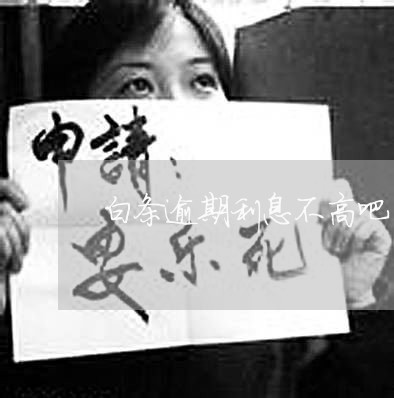 申請：
白条逾期利息不高吧
安乐死